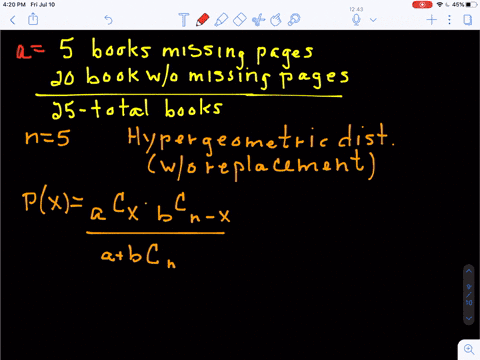 4:20 PM Fri Jul 10
45%
a= 5 books missing pages
20 book w/o missing pages
25-total books
n=5 Hypergeometric dist.
(w/o replacement)
P(x)= aCx · bCn-x
a+bCn